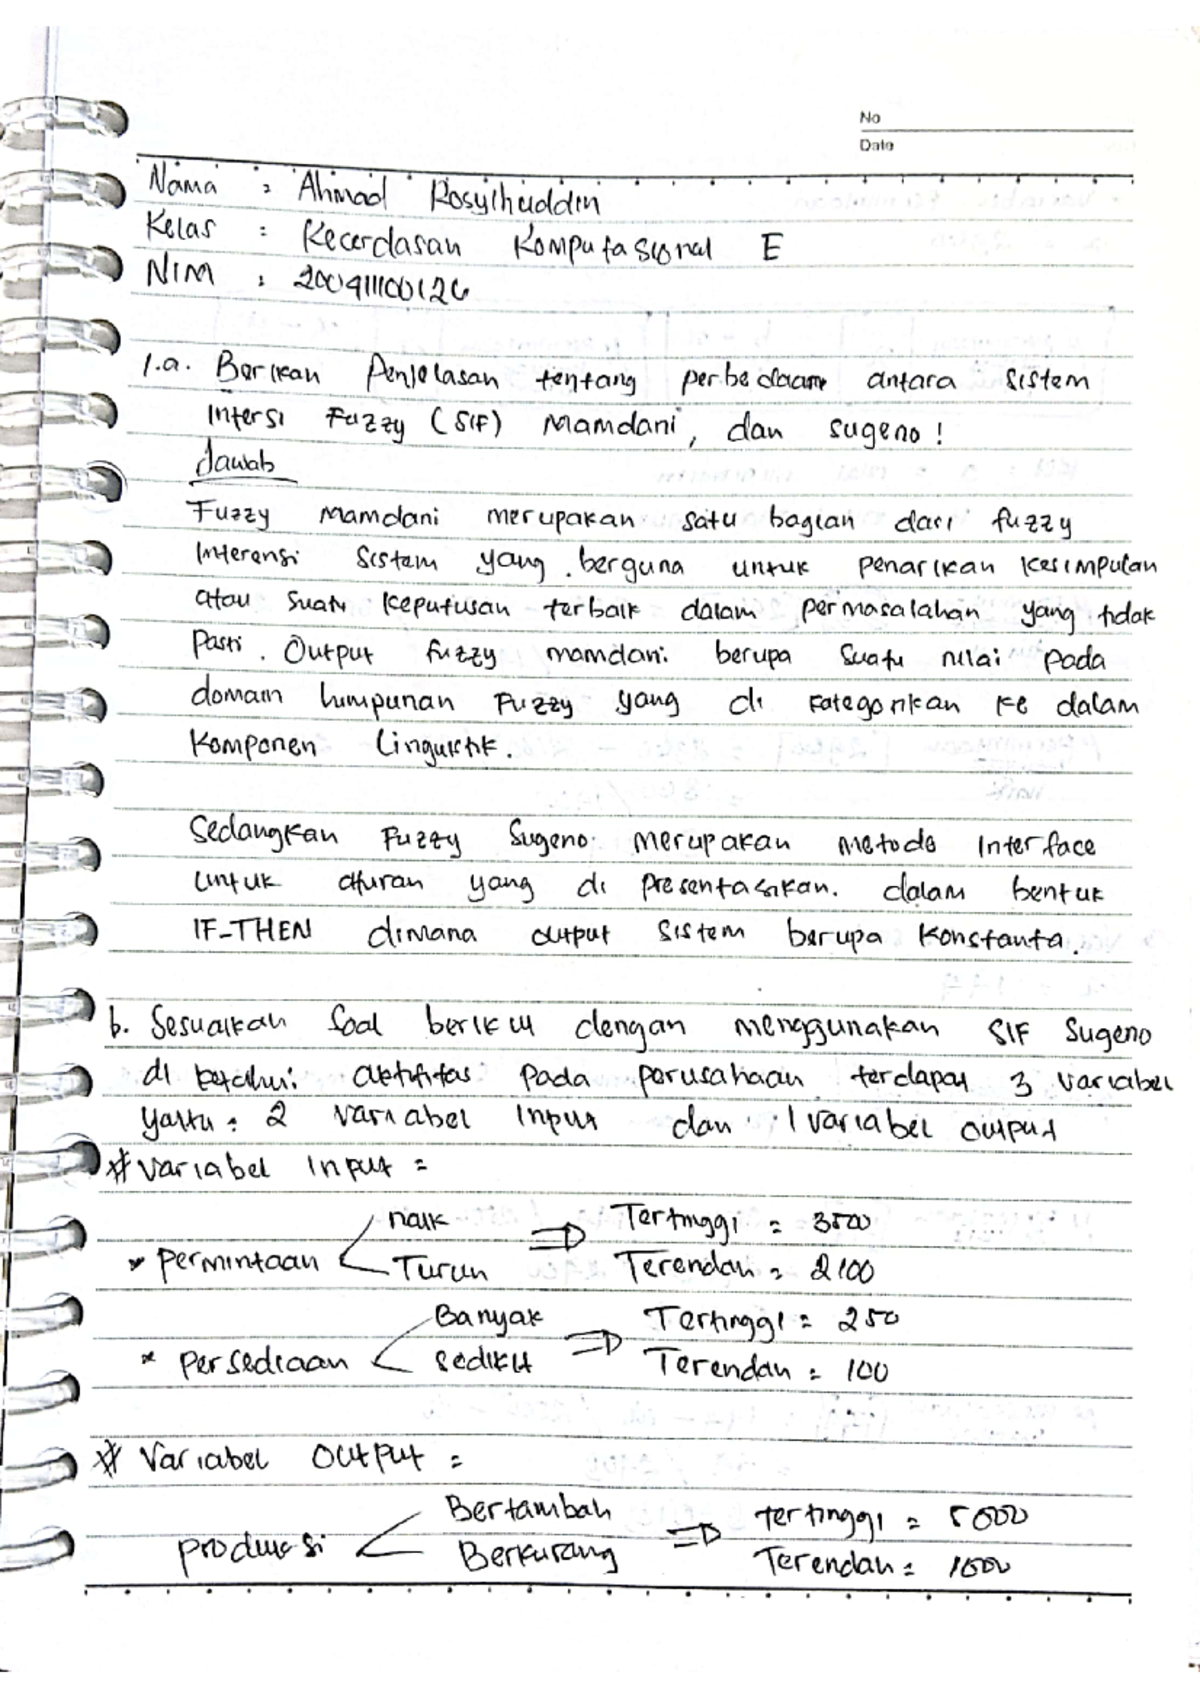 No
Date
Nama : Ahmad Rosyihuddin
Kelas : Kecerdasan Komputasional E
NIM : 200411100126
1.a. Berikan Penjelasan tentang perbedaan antara sistem
Intersi Fuzzy (SIF) Mamdani, dan sugeno !
Jawab
Fuzzy mamdani merupakan satu bagian dari fuzzy
Interensi Sistem yang berguna untuk penarikan kesimpulan
atau suatu keputusan terbaik dalam permasalahan yang tidak
Pasti. Output fuzzy mamdani berupa suatu nilai pada
domain himpunan Fuzzy yang di kategorikan ke dalam
Komponen linguistik.
Sedangkan Fuzzy Sugeno merupakan metode Interface
untuk aturan yang di presentasikan dalam bentuk
IF-THEN dimana output sistem berupa konstanta.
b. Sesuaikan soal berikut dengan menggunakan SIF Sugeno
di ketahui aktifitas pada perusahaan terdapat 3 variabel
yaitu : 2 variabel Input dan 1 variabel output
* Variabel Input =
naik Tertinggi = 3500
* Permintaan
Turun Terendah = 2100
Banyak Tertinggi = 250
* Persediaan
Sedikit Terendah = 100
* Variabel OUTPUT =
Bertambah tertinggi = 5000
produksi
Berkurang Terendah = 1000